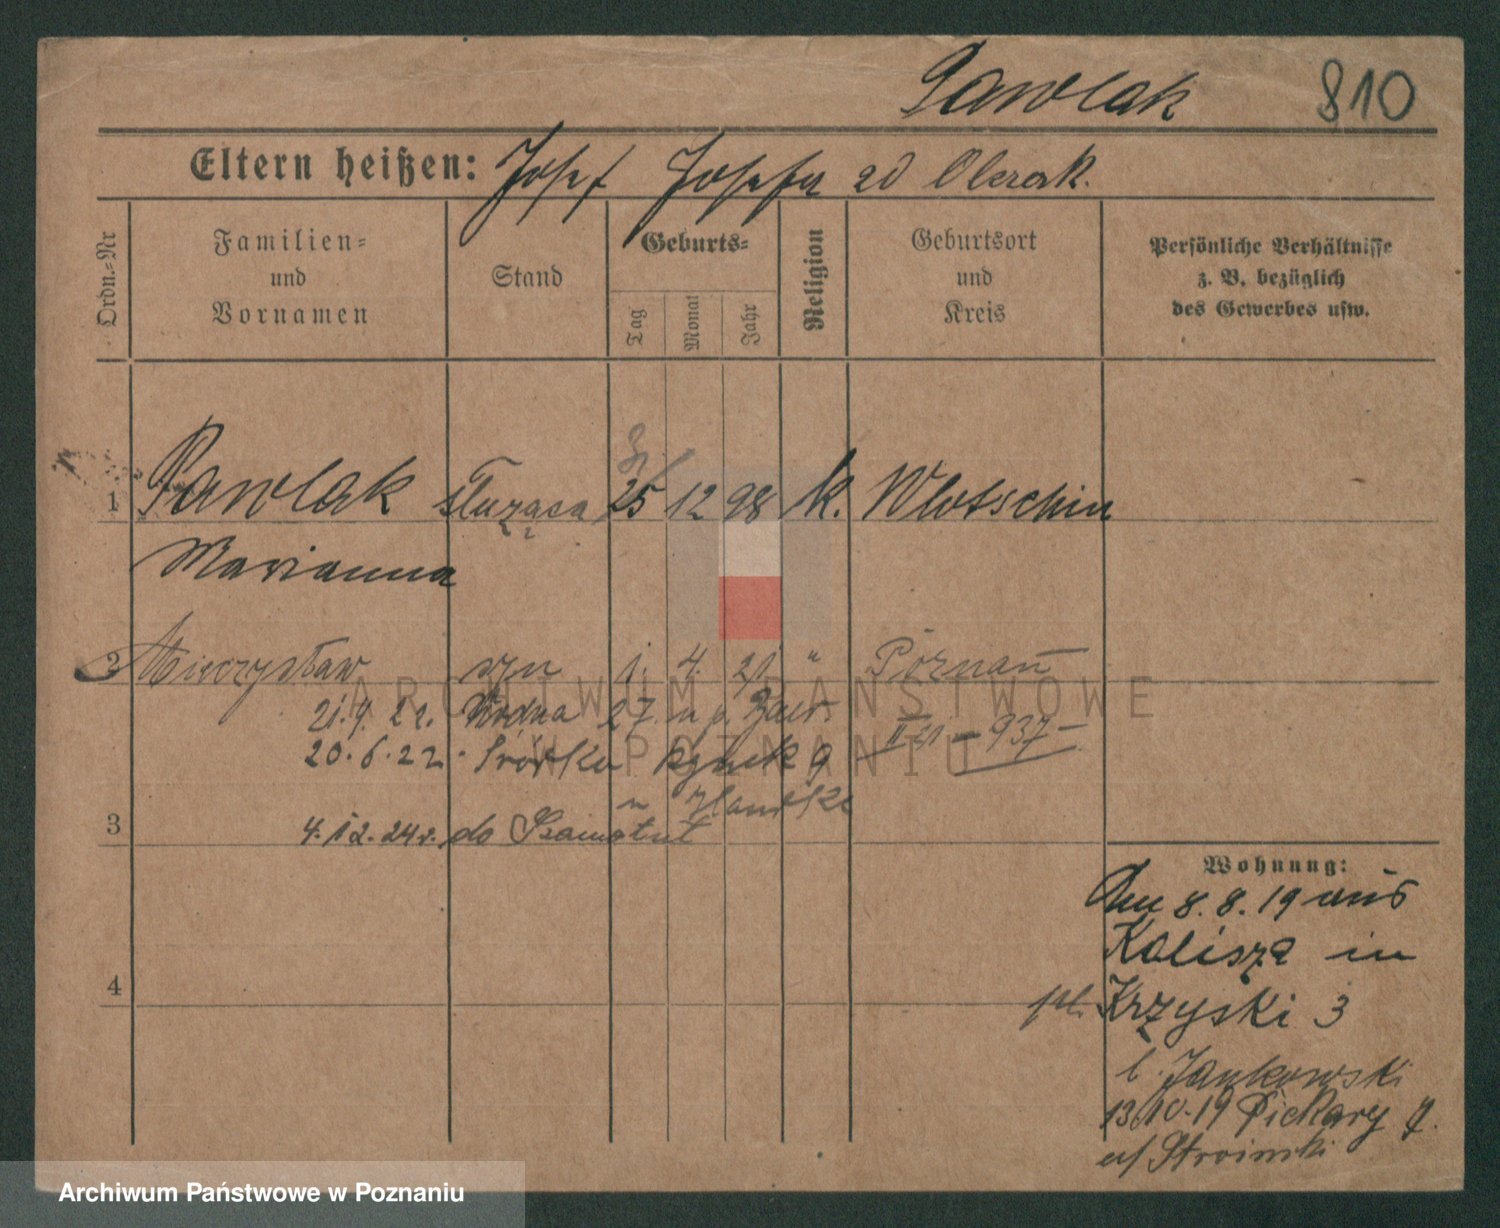 Pawlak 810
Eltern heißen: Josef Josefa zd Olczak.
Ordn.-Nr
Familien-
und
Vornamen
Stand
Geburts-
Tag
Monat
Jahr
Religion
Geburtsort
und
Kreis
Persönliche Verhältnisse
z. B. bezüglich
des Gewerbes usw.
1 Pawlak służąca 25 12 98 k. Wlotschin
Marianna
2 Mieczysław syn 1. 4. 21 " Poznań
21.9.21. Wodna 27
II 21 - 937 -
20.6.22. Śródka Rynek 9
3
4.12.24r. do Szamotuł
4
Wohnung:
Am 8.8.19 aus
Kalisza in
pl. Krzyski 3
b. Jankowski
13.10.19 Piekary 7.
Stroiński
ARCHIWUM PAŃSTWOWE
W POZNANIU
Archiwum Państwowe w Poznaniu